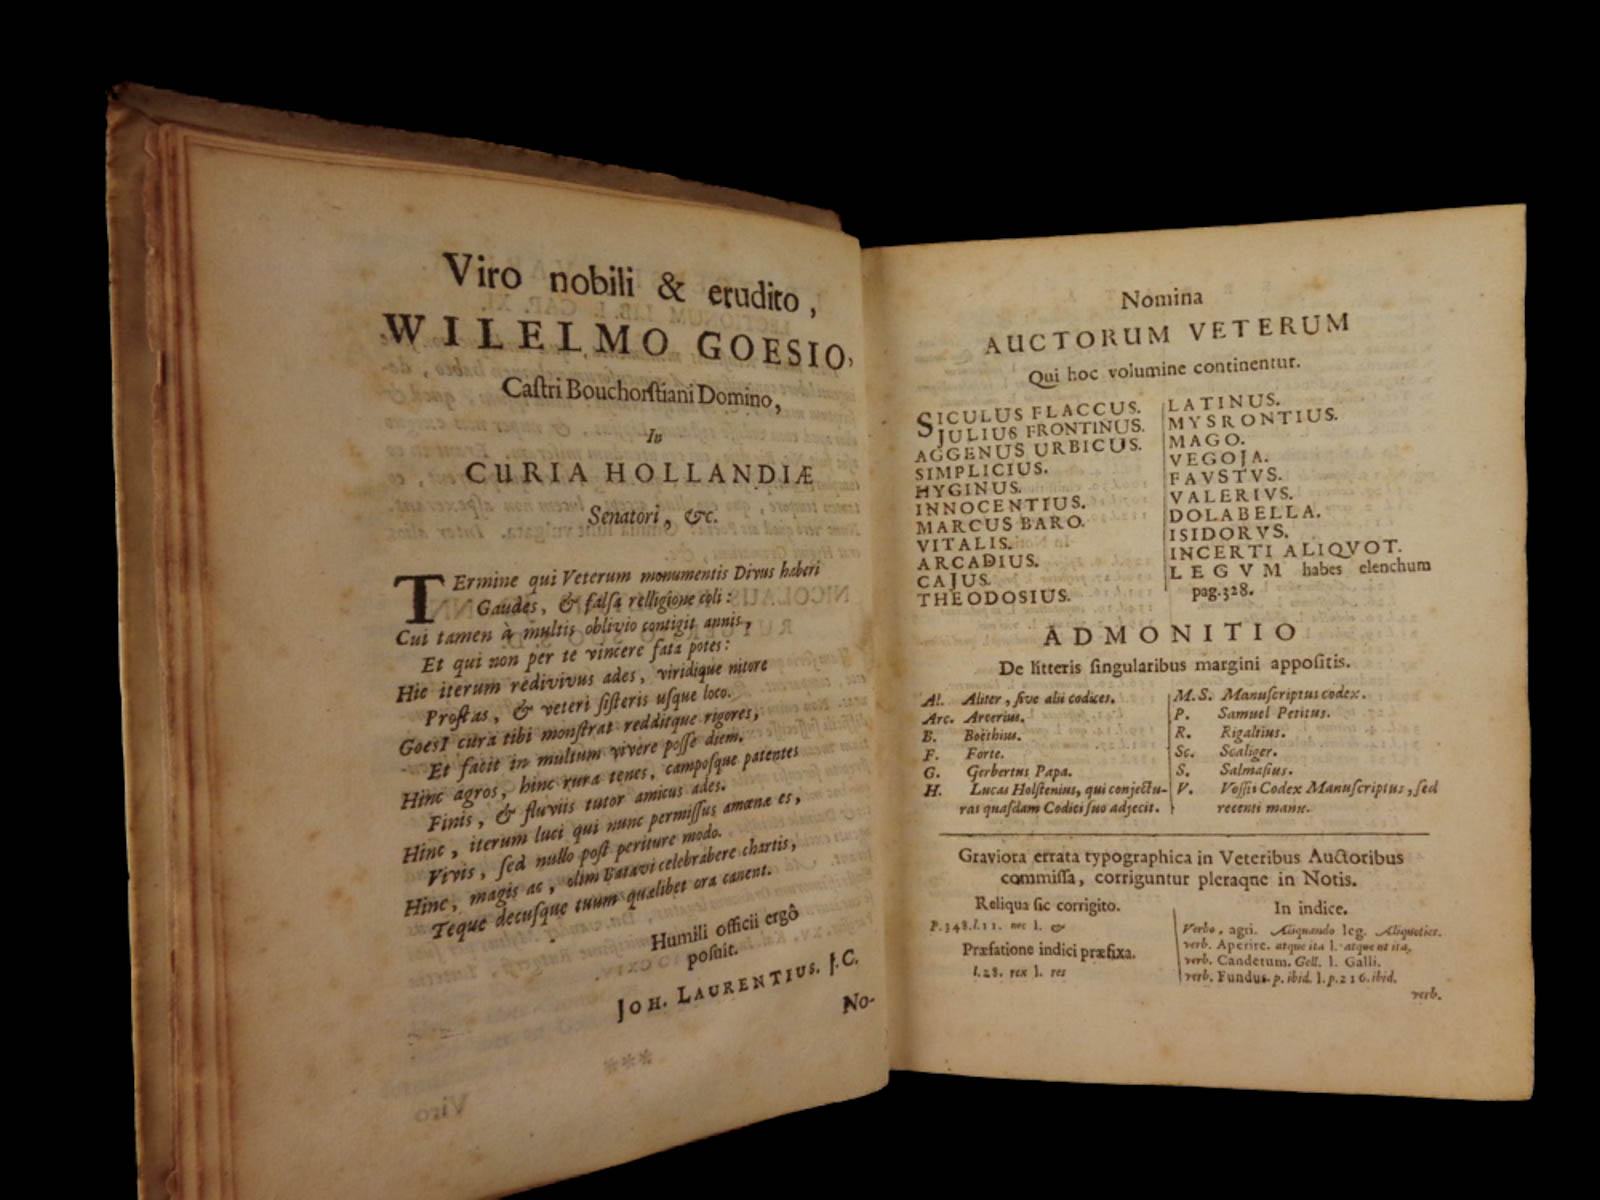 Viro nobili & erudito,
WILELMO GOESIO,
Caſtri Bouchorſtiani Domino,
In
CURIA HOLLANDIÆ
Senatori, &c.
TErmine qui Veterum monumentis Divus haberi
Gaudes, & falſa relligione coli:
Cui tamen à multis oblivio contigit annis,
Et qui non per te vincere fata potes:
Hic iterum redivivus ades, viridique nitore
Proſtas, & veteri ſiſteris uſque loco.
GoesI cura tibi monſtrat redditque rigores,
Et facit in multum vivere poſſe diem.
Hinc agros, hinc rura tenes, campoſque patentes
Finis, & fluviis tutor amicus ades.
Hinc, iterum luci qui nunc permiſſus amœnæ es,
Vivis, ſed nullo poſt periture modo.
Hinc, magis ac, olim Batavi celebrabere chartis,
Teque decuſque tuum quælibet ora canent.
Humili officii ergô
poſuit.
JOH. LAURENTIUS. J.C.
No-
Viro
Nomina
AUCTORUM VETERUM
Qui hoc volumine continentur.
SICULUS FLACCUS.
JULIUS FRONTINUS.
AGGENUS URBICUS.
SIMPLICIUS.
HYGINUS.
INNOCENTIUS.
MARCUS BARO.
VITALIS.
ARCADIUS.
CAJUS.
THEODOSIUS.
LATINUS.
MYSRONTIUS.
MAGO.
VEGOJA.
FAVSTVS.
VALERIVS.
DOLABELLA.
ISIDORVS.
INCERTI ALIQVOT.
LEGVM habes elenchum
pag.328.
ADMONITIO
De litteris ſingularibus margini appoſitis.
Al. Aliter, ſive alii codices.
Arc. Arcerius.
B. Boëthius.
F. Forte.
G. Gerbertus Papa.
H. Lucas Holſtenius, qui conjectu-
ras quaſdam Codici ſuo adjecit.
M.S. Manuſcriptus codex.
P. Samuel Petitus.
R. Rigaltius.
Sc. Scaliger.
S. Salmaſius.
V. Voſſii Codex Manuſcriptus, ſed
recenti manu.
Graviora errata typographica in Veteribus Auctoribus
commiſſa, corriguntur pleraque in Notis.
Reliqua ſic corrigito.
P.348.l.11. nec l. &
Præfatione indici præfixa.
l.28. rex l. res
In indice.
Verbo, agri. Aliquando leg. Aliquoties.
verb. Aperire. atque ita l. atque ut ita,
verb. Candetum. Gell. l. Galli.
verb. Fundus. p. ibid. l. p.216. ibid.
verb.